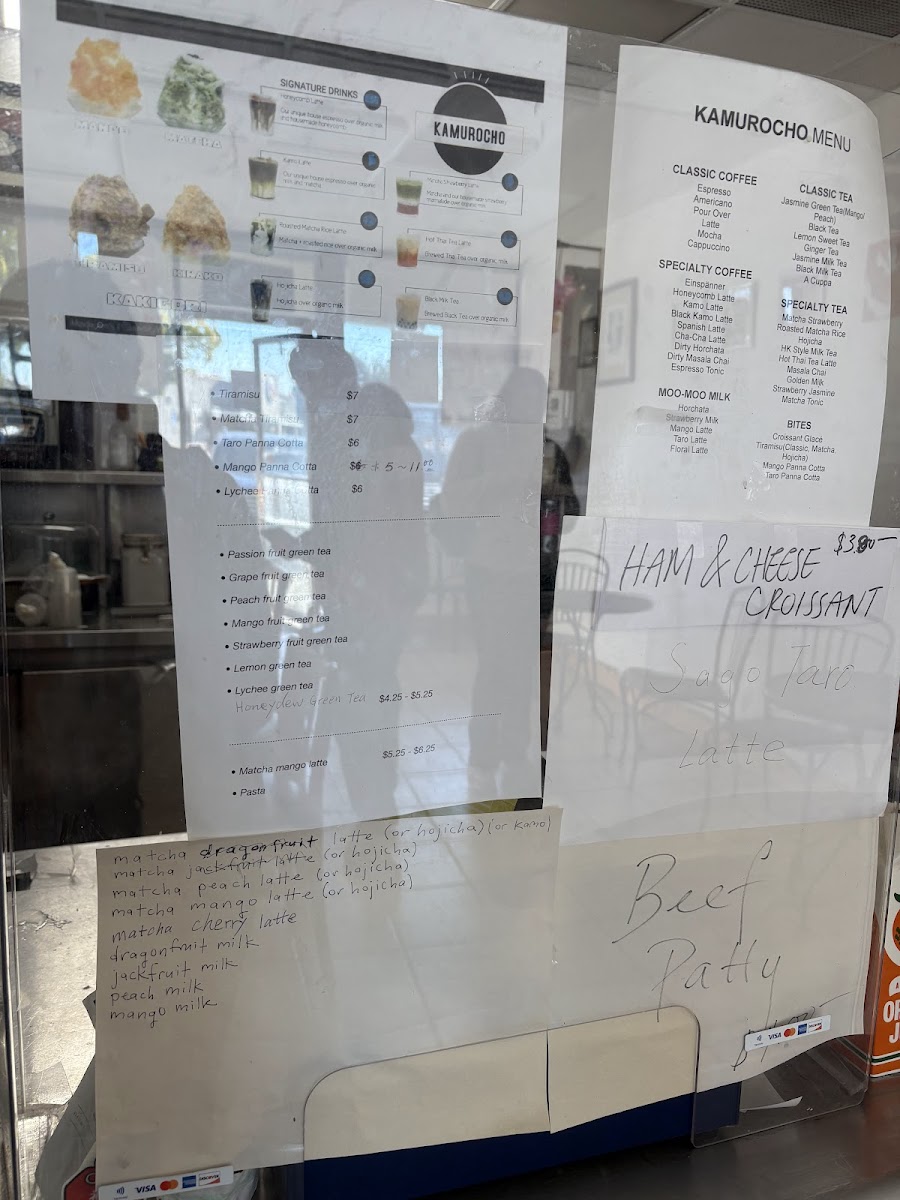 MANGO
MATCHA
TIRAMISU
KINAKO
KAKIGORI
SIGNATURE DRINKS
Honeycomb Latte
Our unique house espresso over organic milk
and housemade honeycomb
Kamo Latte
Our unique house espresso over organic
milk and matcha
Roasted Matcha Rice Latte
Matcha + roasted rice over organic milk
Hojicha Latte
Hojicha over organic milk
KAMUROCHO
Matcha Strawberry Latte
Matcha and our housemade strawberry
marmalade over organic milk
Hot Thai Tea Latte
Brewed Thai Tea over organic milk
Black Milk Tea
Brewed Black Tea over organic milk
• Tiramisu $7
• Matcha Tiramisu $7
• Taro Panna Cotta $6
• Mango Panna Cotta $6 + 5 ~ 11.00
• Lychee Panna Cotta $6
• Passion fruit green tea
• Grape fruit green tea
• Peach fruit green tea
• Mango fruit green tea
• Strawberry fruit green tea
• Lemon green tea
• Lychee green tea
Honeydew Green Tea $4.25 - $5.25
$5.25 - $6.25
• Matcha mango latte
• Pasta
KAMUROCHO MENU
CLASSIC COFFEE
Espresso
Americano
Pour Over
Latte
Mocha
Cappuccino
SPECIALTY COFFEE
Einspanner
Honeycomb Latte
Kamo Latte
Black Kamo Latte
Spanish Latte
Cha-Cha Latte
Dirty Horchata
Dirty Masala Chai
Espresso Tonic
MOO-MOO MILK
Horchata
Strawberry Milk
Mango Latte
Taro Latte
Floral Latte
CLASSIC TEA
Jasmine Green Tea(Mango/
Peach)
Black Tea
Lemon Sweet Tea
Ginger Tea
Jasmine Milk Tea
Black Milk Tea
A Cuppa
SPECIALTY TEA
Matcha Strawberry
Roasted Matcha Rice
Hojicha
HK Style Milk Tea
Hot Thai Tea Latte
Masala Chai
Golden Milk
Strawberry Jasmine
Matcha Tonic
BITES
Croissant Glacé
Tiramisu(Classic, Matcha,
Hojicha)
Mango Panna Cotta
Taro Panna Cotta
HAM & CHEESE
CROISSANT
Sago Taro
Latte
matcha dragonfruit latte (or hojicha) (or kamo)
matcha jackfruit latte (or hojicha)
matcha peach latte (or hojicha)
matcha mango latte (or hojicha)
matcha cherry latte
dragonfruit milk
jackfruit milk
peach milk
mango milk
Beef
Patty
VISA
VISA
DISCOVER